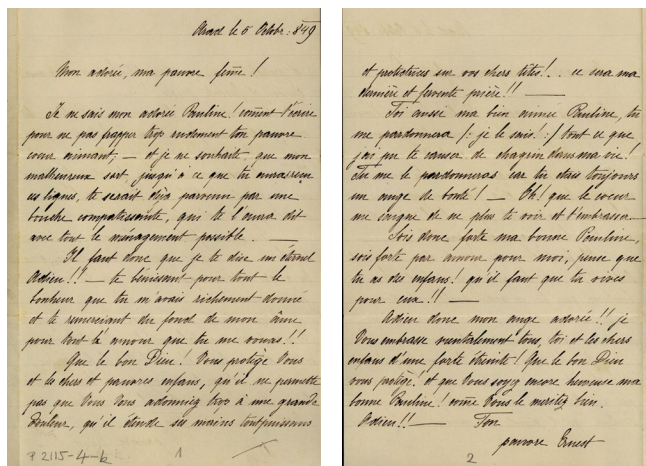 Arad le 5 Octobr: 849
Mon adorée, ma pauvre femme!
Je ne sais mon adorée Pauline! coment t'écrire
pour ne pas frapper trop rudement ton pauvre
coeur aimant; — et je ne souhaite, que mon
malheureux sort, jusqu'à ce que tu auras reçu
ces lignes, te serait déja parvenu par une
bouche compatissante, qui te l'aura dit
avec tout le ménagement possible. —
Il faut donc que je te dise un éternel
Adieu!! — te bénissant pour tout le
bonheur que tu m'avais richement donné
et te remerciant du fond de mon âme
pour tout l'amour que tu me vouas!!
Que le bon Dieu! Vous protège Vous
et les chers et pauvres enfans, qu'il ne permette
pas que Vous Vous adonniez trop à une grande
douleur, qu'il étende ses mains toutpuissans
P 2115-4-b 1
et protectrices sur vos chers têtes!.. ce sera ma
dernière et fervente prière!! —
Toi aussi ma bien aimée Pauline, tu
me pardonneras /: je le sais! :/ tout ce que
j'ai pu te causer de chagrin dans ma vie!
Tu me le pardonneras car tu étais toujours
un ange de bonté! — Oh! que le coeur
me saigne de ne plus te voir et t'embrasser —
Sois donc forte ma bonne Pauline,
sois forte par amour pour moi; pense que
tu as des enfans! qu'il faut que tu vives
pour eux!! —
Adieu donc mon ange adorée!! je
Vous embrasse mentalement tous, toi et les chers
enfans d'une forte étreinte! Que le bon Dieu
vous protège, et que Vous soyez encore heureuse ma
bonne Pauline! come Vous le meritez bien.
Adieu!! — Ton
pauvre Ernest
2